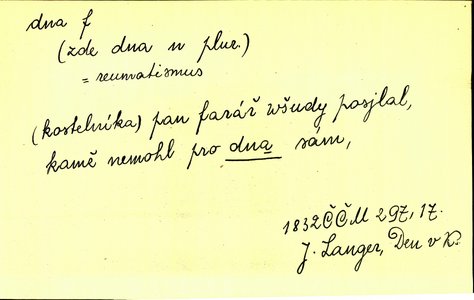 dna f
(zde dna n plur.)
= reumatismus
(kostelníka) pan farář wšudy posjlal,
kamě nemohl pro dna sám,
1832 ČČM 297, 17.
J. Langer, Den v K.